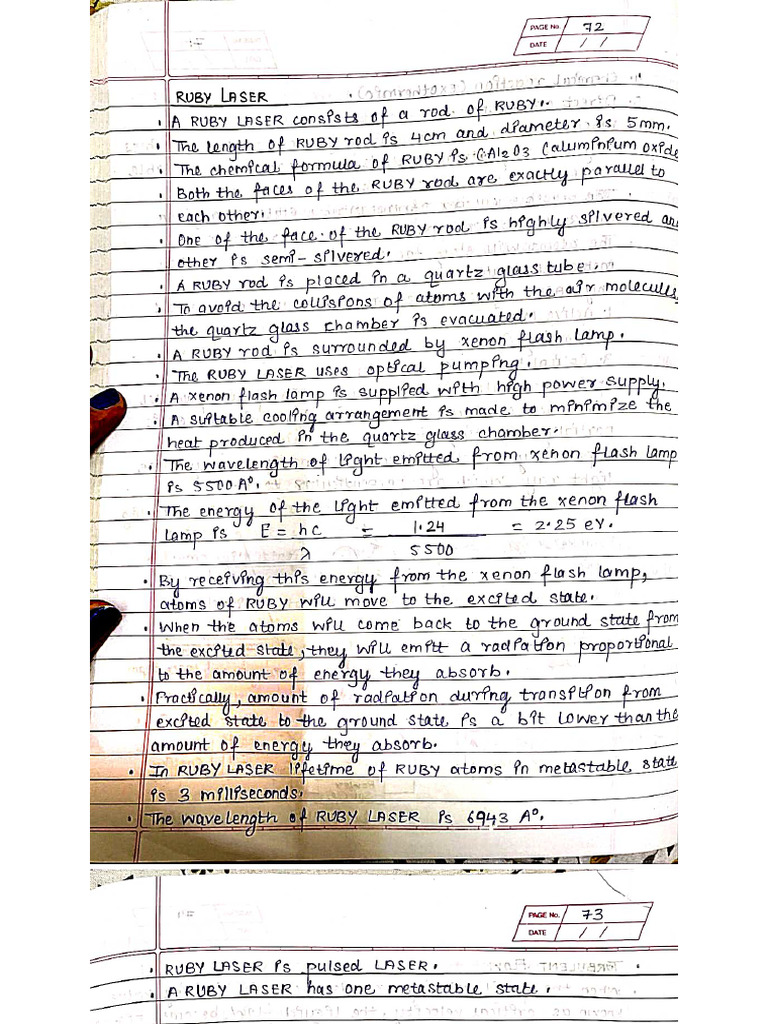 PAGE No. 72
DATE / /
RUBY LASER
• A RUBY LASER consists of a rod of RUBY.
• The length of RUBY rod is 4cm and diameter is 5mm.
• The chemical formula of RUBY is (Al2O3 (aluminium oxide
• Both the faces of the RUBY rod are exactly parallel to
each other.
• One of the face of the RUBY rod is highly silvered an
other is semi-silvered.
• A RUBY rod is placed in a quartz glass tube.
• To avoid the collisions of atoms with the air molecules
the quartz glass chamber is evacuated.
• A RUBY rod is surrounded by xenon flash lamp.
• The RUBY LASER uses optical pumping.
• A xenon flash lamp is supplied with high power supply.
• A suitable cooling arrangement is made to minimize the
heat produced in the quartz glass chamber.
• The wavelength of light emitted from xenon flash lamp
is 5500 A°.
• The energy of the light emitted from the xenon flash
lamp is E = hc = 1.24 = 2.25 eV.
λ 5500
• By receiving this energy from the xenon flash lamp,
atoms of RUBY will move to the excited state.
• When the atoms will come back to the ground state from
the excited state, they will emitt a radiation proportional
to the amount of energy they absorb.
• Practically, amount of radiation during transition from
excited state to the ground state is a bit lower than the
amount of energy they absorb.
• In RUBY LASER lifetime of RUBY atoms in metastable state
is 3 milliseconds.
• The wavelength of RUBY LASER is 6943 A°.
PAGE No. 73
DATE / /
• RUBY LASER is pulsed LASER.
• A RUBY LASER has one metastable state.